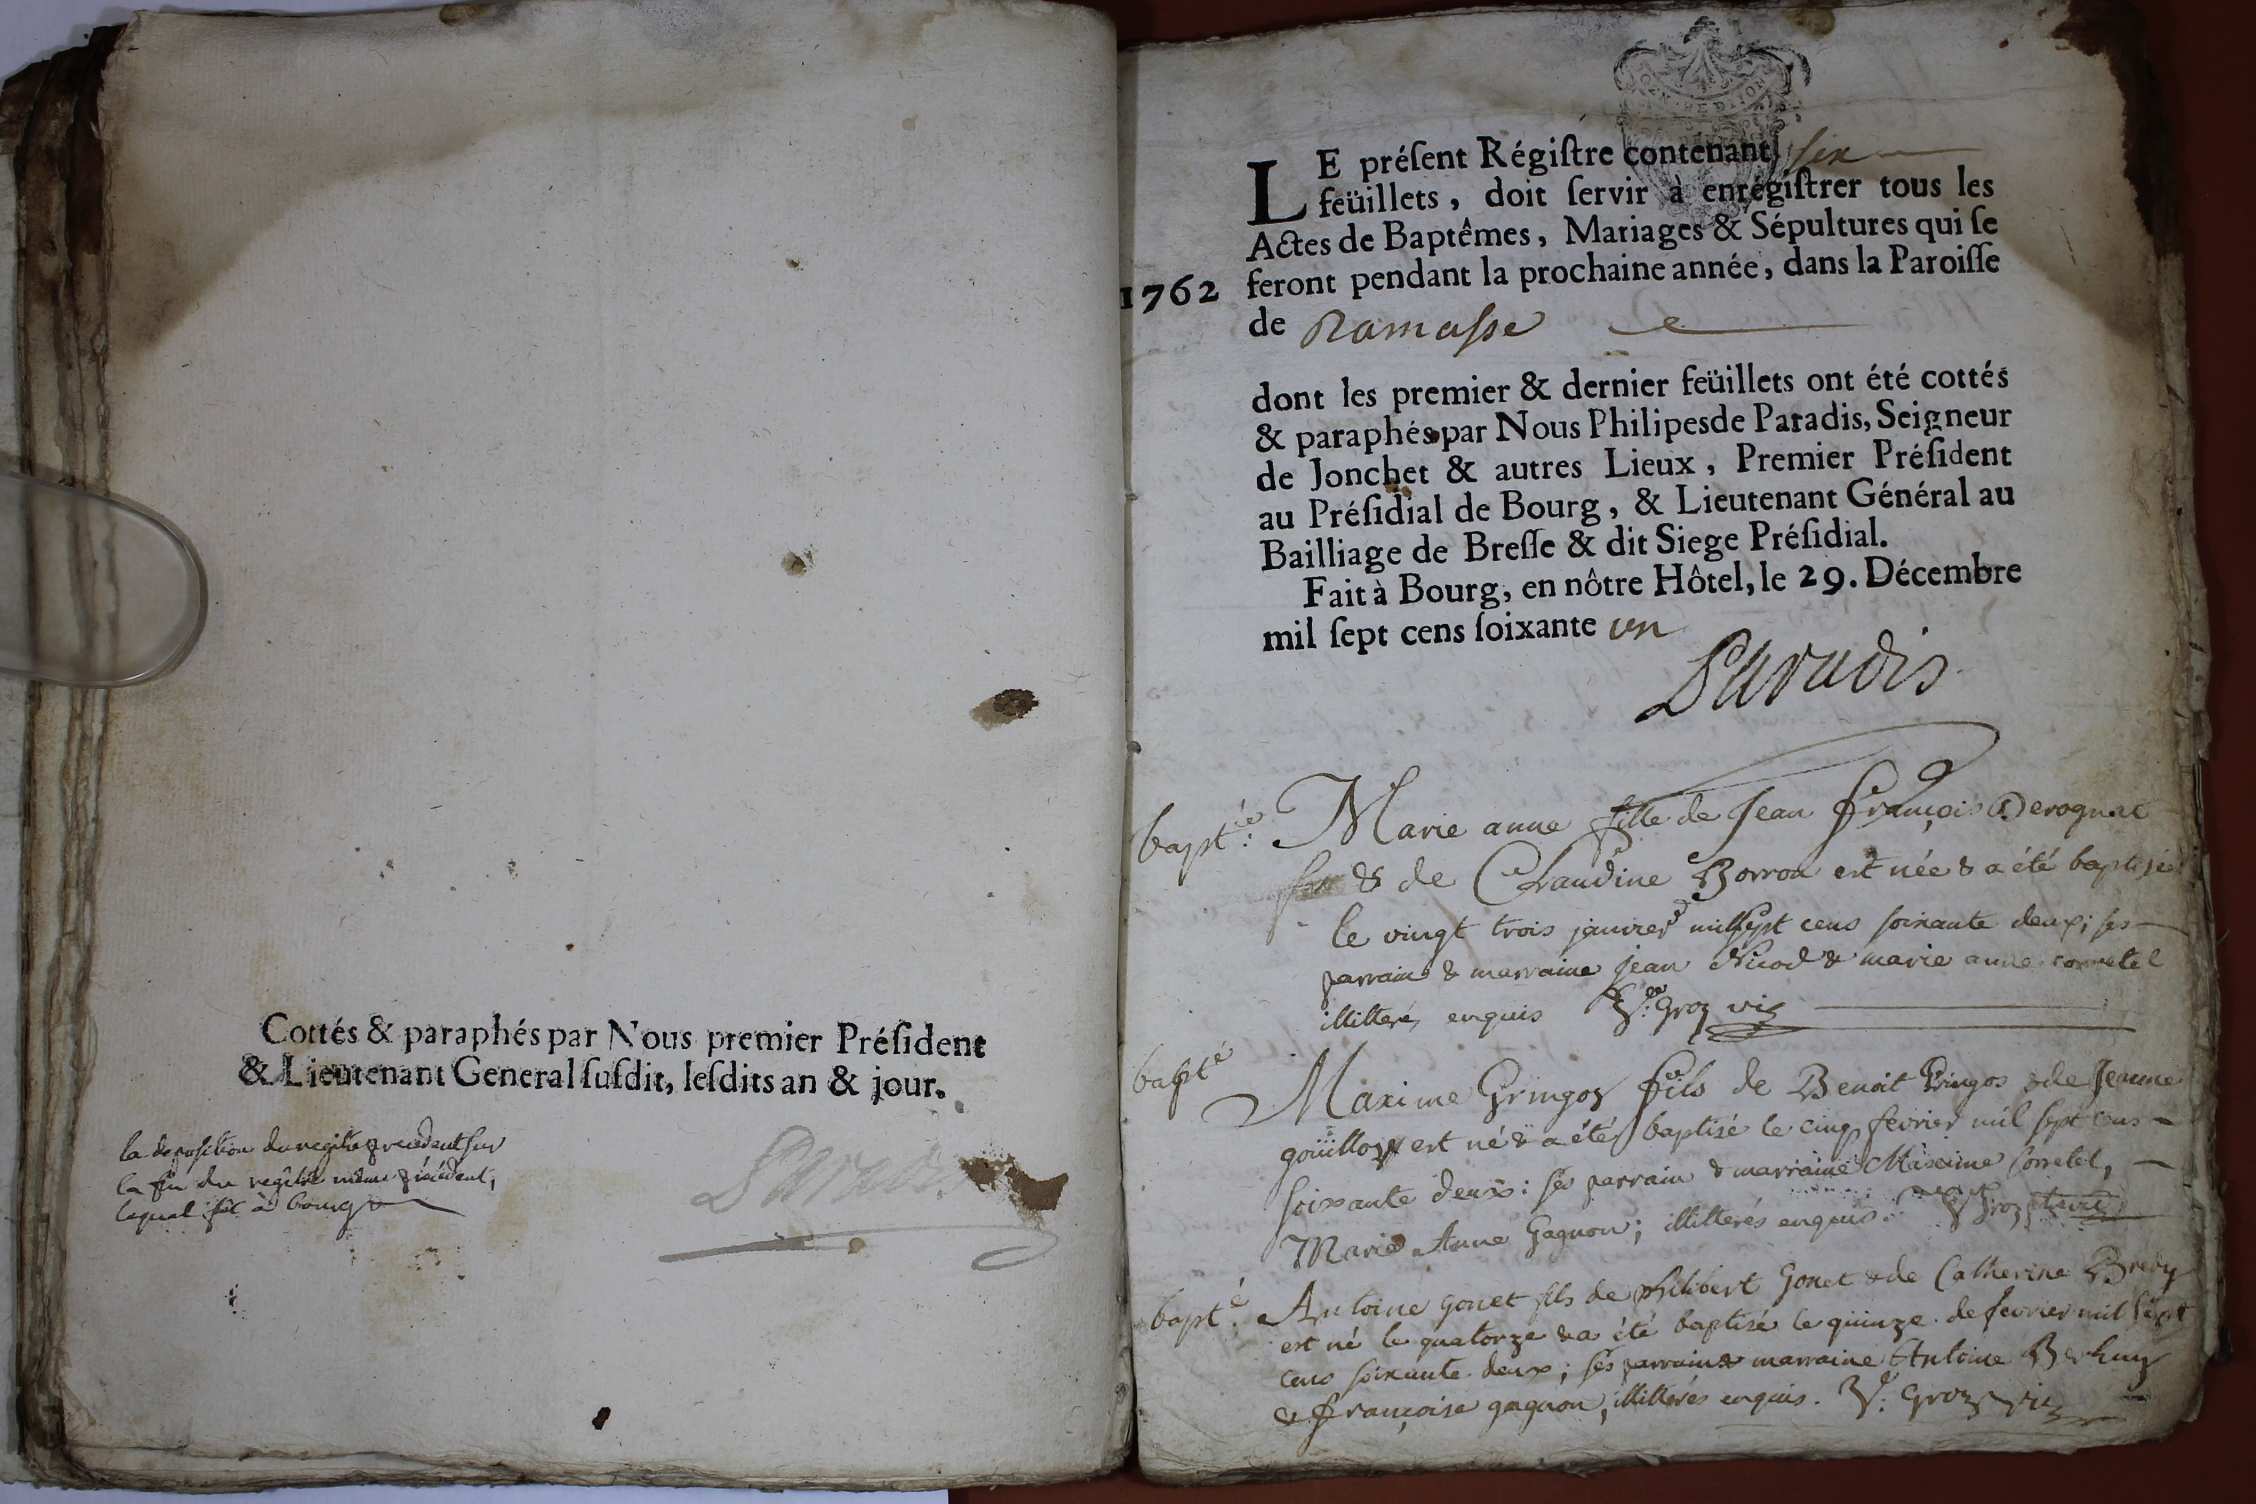 Cottés & paraphés par Nous premier Préſident
& Lieutenant General ſuſdit, leſdits an & jour.
la deposition du registre precedent sur
la fin du regître même précédent,
lequel est à bourg
Paradis
LE préſent Régiſtre contenant six
feüillets, doit ſervir à enrégiſtrer tous les
Actes de Baptêmes, Mariages & Sépultures qui ſe
1762 feront pendant la prochaine année, dans la Paroiſſe
de Ramasse
dont les premier & dernier feüillets ont été cottés
& paraphés par Nous Philipes de Paradis, Seigneur
de Jonchet & autres Lieux, Premier Préſident
au Préſidial de Bourg, & Lieutenant Général au
Bailliage de Breſſe & dit Siege Préſidial.
Fait à Bourg, en nôtre Hôtel, le 29. Décembre
mil ſept cens ſoixante un
Paradis
bapt.ée: Marie anne fille de Jean François Derognat
& de Claudine Borron est née & a été baptisée
le vingt trois janvier mil sept cens soixante deux; ses
parrain & marraine jean Nicod & marie anne corretel
illitterés enquis Groz vic
bapté Maxime Gringoz fils de Benoit Gringos & de Jeanne
gouilloz est né & a été baptisé le cinq fevrier mil sept cens
soixante deux: ses parrain & marraine Maxime Corretel,
Marie Anne Gagnon; illitterés enquis. Groz vic
bapt.é Antoine gonet fils de philibert gonet & de Catherine Brevy
est né le quatorze & a été baptisé le quinze de fevrier mil sept
cens soixante deux; ses parrain & marraine Antoine
& françoise gagnon, illitterés enquis. Groz vic